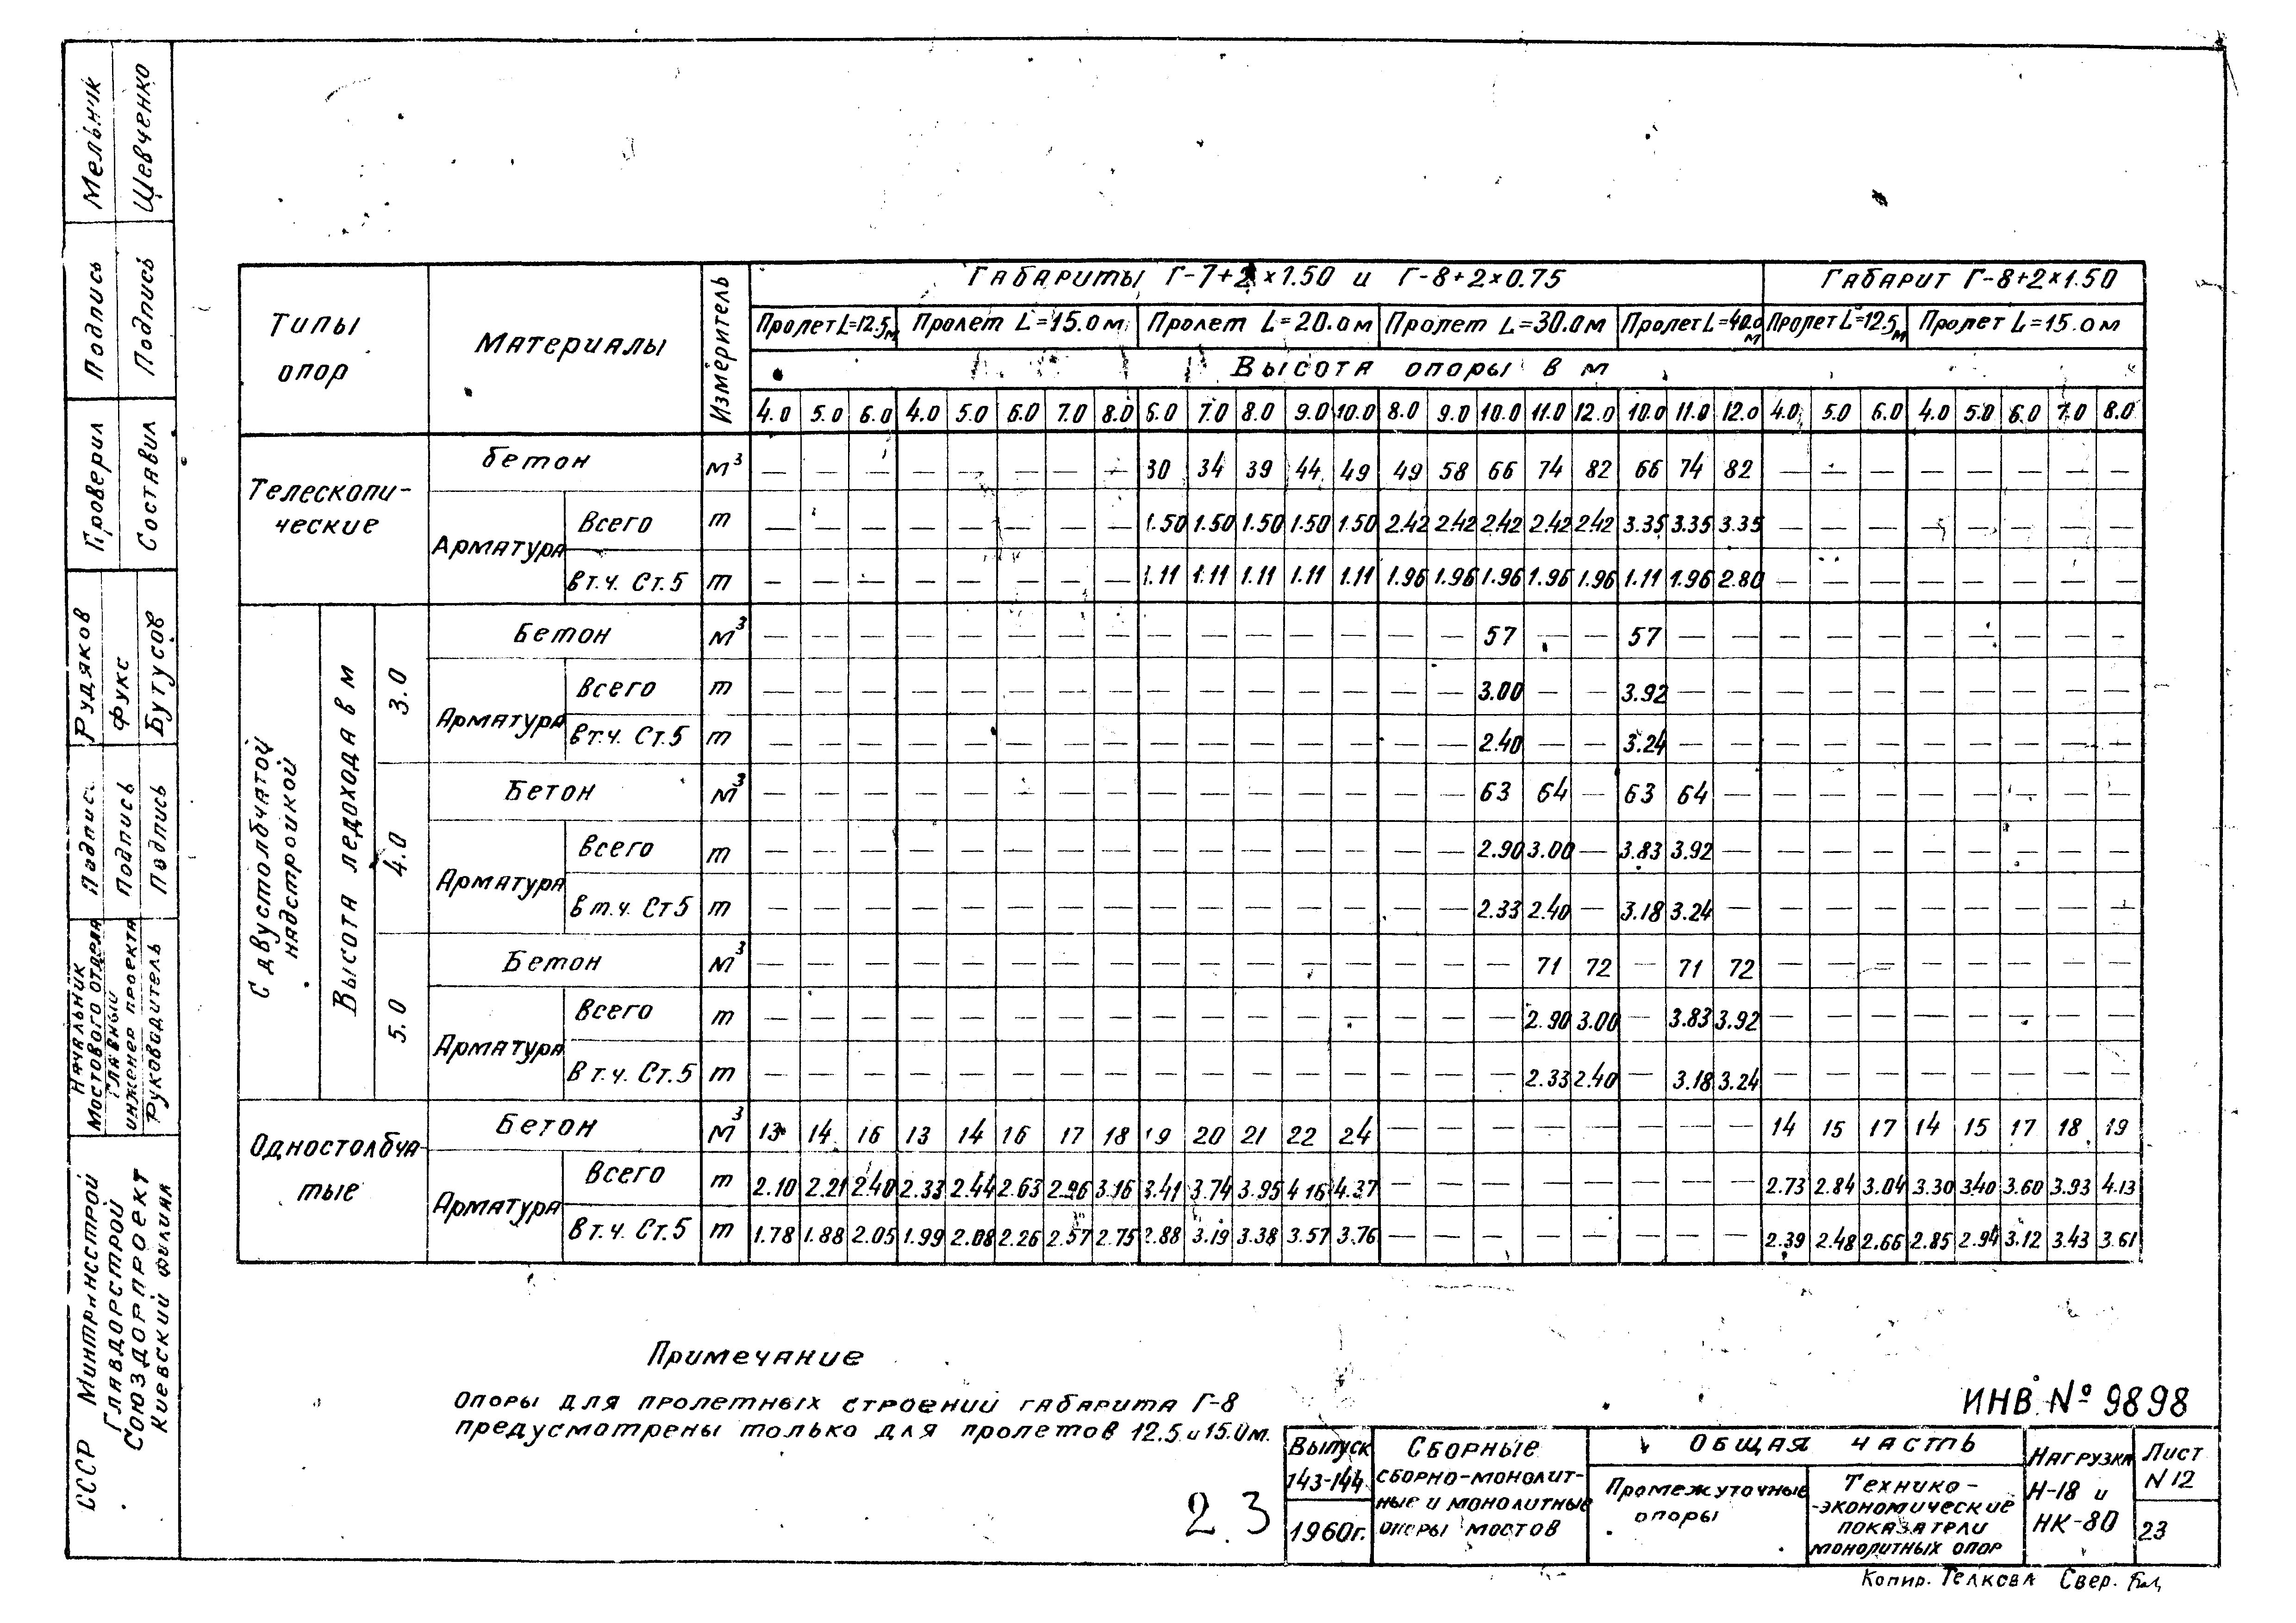 Габариты Г-7+2×1.50 и Г-8+2×0.75 Габарит Г-8+2×1.50
Типы опор Материалы Измеритель
Пролет L=12.5м Пролет L=15.0м Пролет L=20.0м Пролет L=30.0м Пролет L=40.0м Пролет L=12.5м Пролет L=15.0м
Высота опоры в м
4.0 5.0 6.0 4.0 5.0 6.0 7.0 8.0 6.0 7.0 8.0 9.0 10.0 8.0 9.0 10.0 11.0 12.0 10.0 11.0 12.0 4.0 5.0 6.0 4.0 5.0 6.0 7.0 8.0
Телескопи-
ческие
Бетон м³ — — — — — — — — 30 34 39 44 49 49 58 66 74 82 66 74 82 — — — — — — — —
Арматура
Всего т — — — — — — — — 1.50 1.50 1.50 1.50 1.50 2.42 2.42 2.42 2.42 2.42 3.35 3.35 3.35 — — — — — — — —
в т.ч. Ст.5 т — — — — — — — — 1.11 1.11 1.11 1.11 1.11 1.96 1.96 1.96 1.96 1.96 1.11 1.96 2.80 — — — — — — — —
С двустолбчатой
надстройкой
Высота ледохода в м
3.0
Бетон м³ — — — — — — — — — — — — — — — 57 — — 57 — — — — — — — — — —
Арматура
Всего т — — — — — — — — — — — — — — — 3.00 — — 3.92 — — — — — — — — — —
в т.ч. Ст.5 т — — — — — — — — — — — — — — — 2.40 — — 3.24 — — — — — — — — — —
4.0
Бетон м³ — — — — — — — — — — — — — — — 63 64 — 63 64 — — — — — — — — —
Арматура
Всего т — — — — — — — — — — — — — — — 2.90 3.00 — 3.83 3.92 — — — — — — — — —
в т.ч. Ст5 т — — — — — — — — — — — — — — — 2.33 2.40 — 3.18 3.24 — — — — — — — — —
5.0
Бетон м³ — — — — — — — — — — — — — — — — 71 72 — 71 72 — — — — — — — —
Арматура
Всего т — — — — — — — — — — — — — — — — 2.90 3.00 — 3.83 3.92 — — — — — — — —
В т.ч. Ст.5 т — — — — — — — — — — — — — — — — 2.33 2.40 — 3.18 3.24 — — — — — — — —
Одностолбча-
тые
Бетон м³ 13 14 16 13 14 16 17 18 19 20 21 22 24 — — — — — — — — 14 15 17 14 15 17 18 19
Арматура
Всего т 2.10 2.21 2.40 2.33 2.44 2.63 2.96 3.16 3.41 3.74 3.95 4.16 4.37 — — — — — — — — 2.73 2.84 3.04 3.30 3.40 3.60 3.93 4.13
В т.ч. Ст.5 т 1.78 1.88 2.05 1.99 2.08 2.26 2.57 2.75 2.88 3.19 3.38 3.57 3.76 — — — — — — — — 2.39 2.48 2.66 2.85 2.94 3.12 3.43 3.61
Примечание
Опоры для пролетных строений габарита Г-8
предусмотрены только для пролетов 12.5 и 15.0м.
23
ИНВ. № 9898
Выпуск
143-144
1960г.
Сборные
сборно-монолит-
ные и монолитные
опоры мостов
Общая часть
Промежуточные
опоры
Технико-
-экономические
показатели
монолитных опор
Нагрузка
Н-18 и
НК-80
Лист
N 12
23
Копир. Телкова Свер.
СССР Минтрансстрой
Главдорстрой
Союздорпроект
Киевский филиал
Начальник
Мостового отдела
Подпись
Рудяков
Главный
инженер проекта
Подпись
Фукс
Руководитель
Подпись
Бутусов
Проверил
Подпись
Мельник
Составил
Подпись
Шевченко